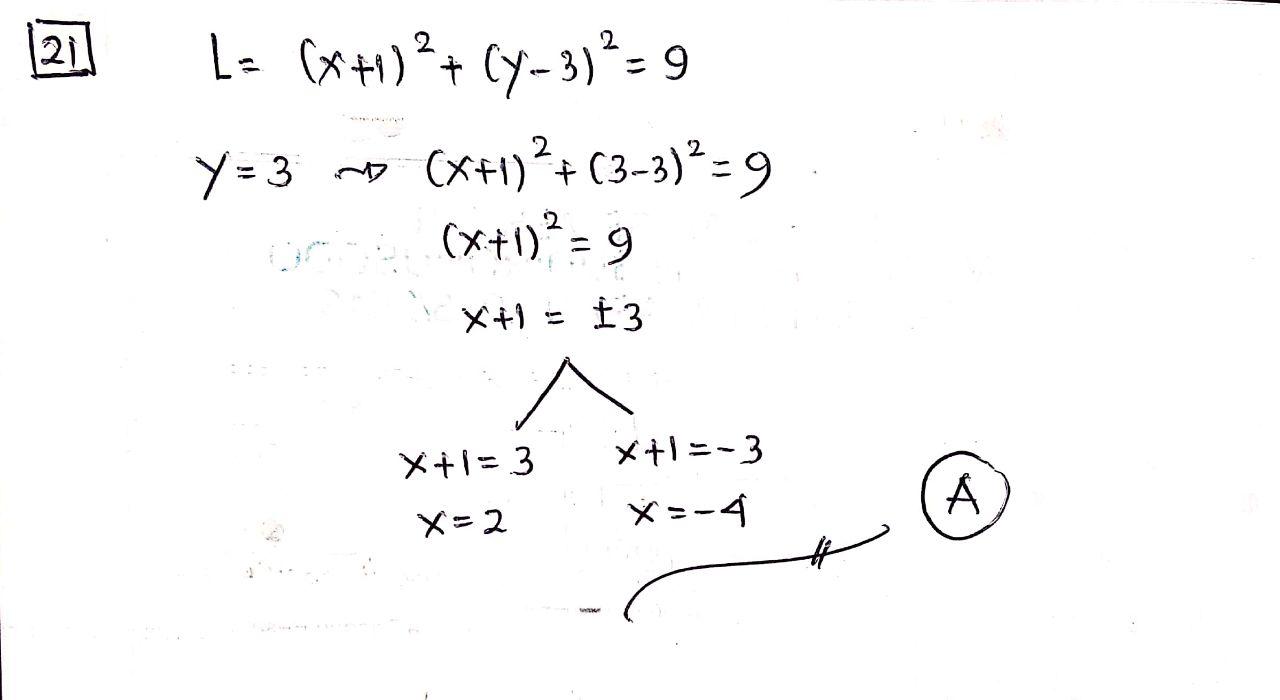 21 L= (x+1)²+ (y-3)² = 9
y=3 ⇝ (x+1)²+(3-3)² = 9
(x+1)² = 9
x+1 = ±3
x+1=3 x+1=-3
x=2 x=-4
A